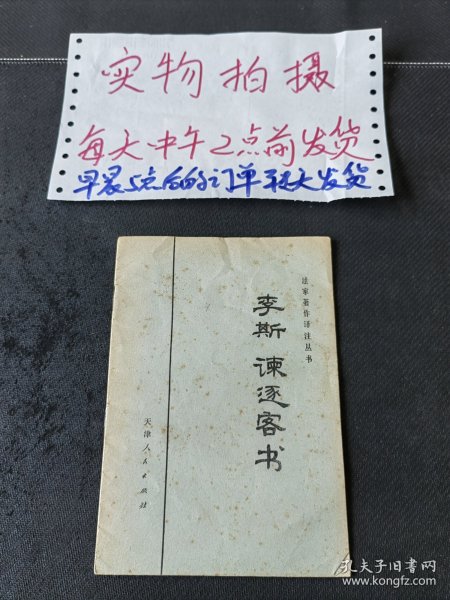 实物拍摄
每天中午2点前发货
早晨5点后的订单砡天发货
法家著作译注丛书
李斯 谏逐客书
天津人民出版社
孔夫子旧书网
www.kongfz.com